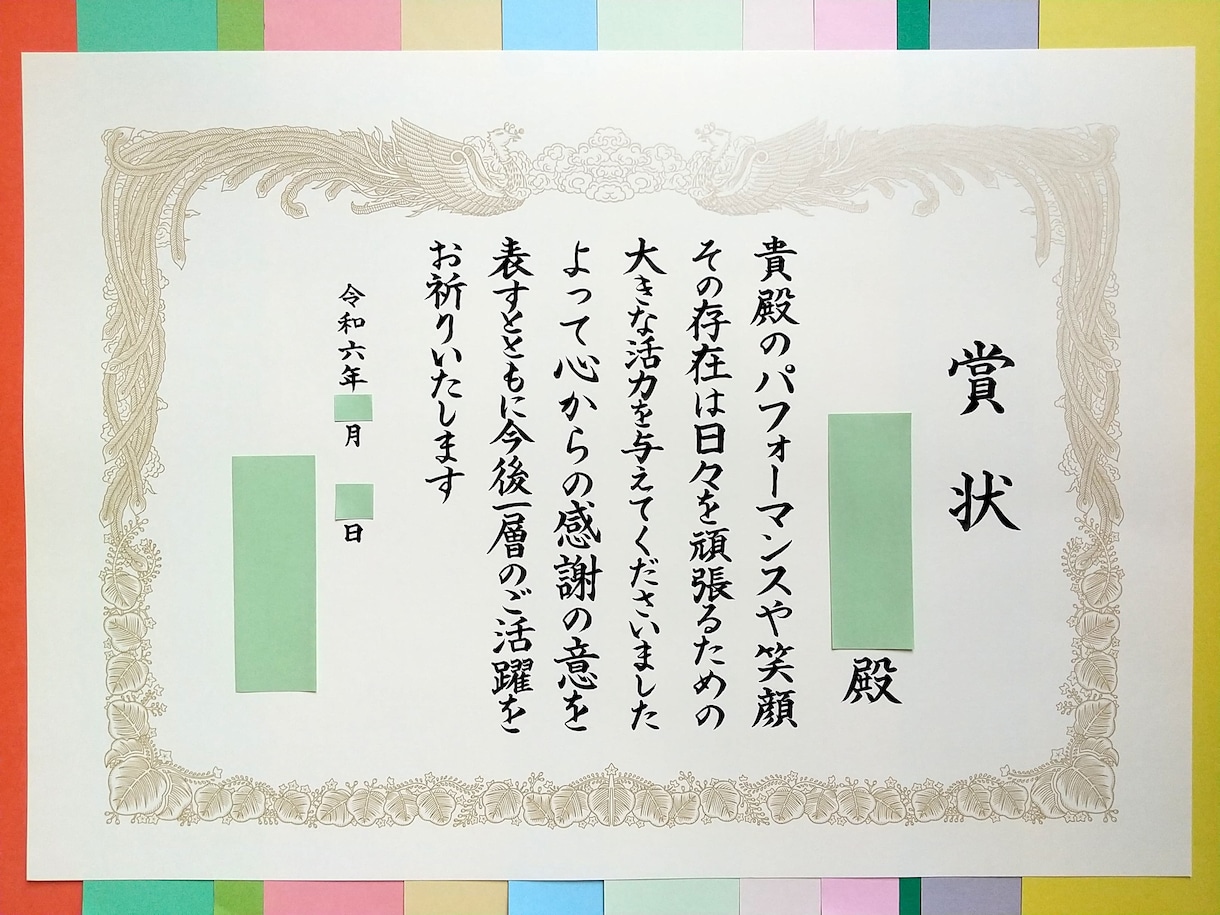 賞状
殿
貴殿のパフォーマンスや笑顔
その存在は日々を頑張るための
大きな活力を与えてくださいました
よって心からの感謝の意を
表すとともに今後一層のご活躍を
お祈りいたします
令和六年 月 日